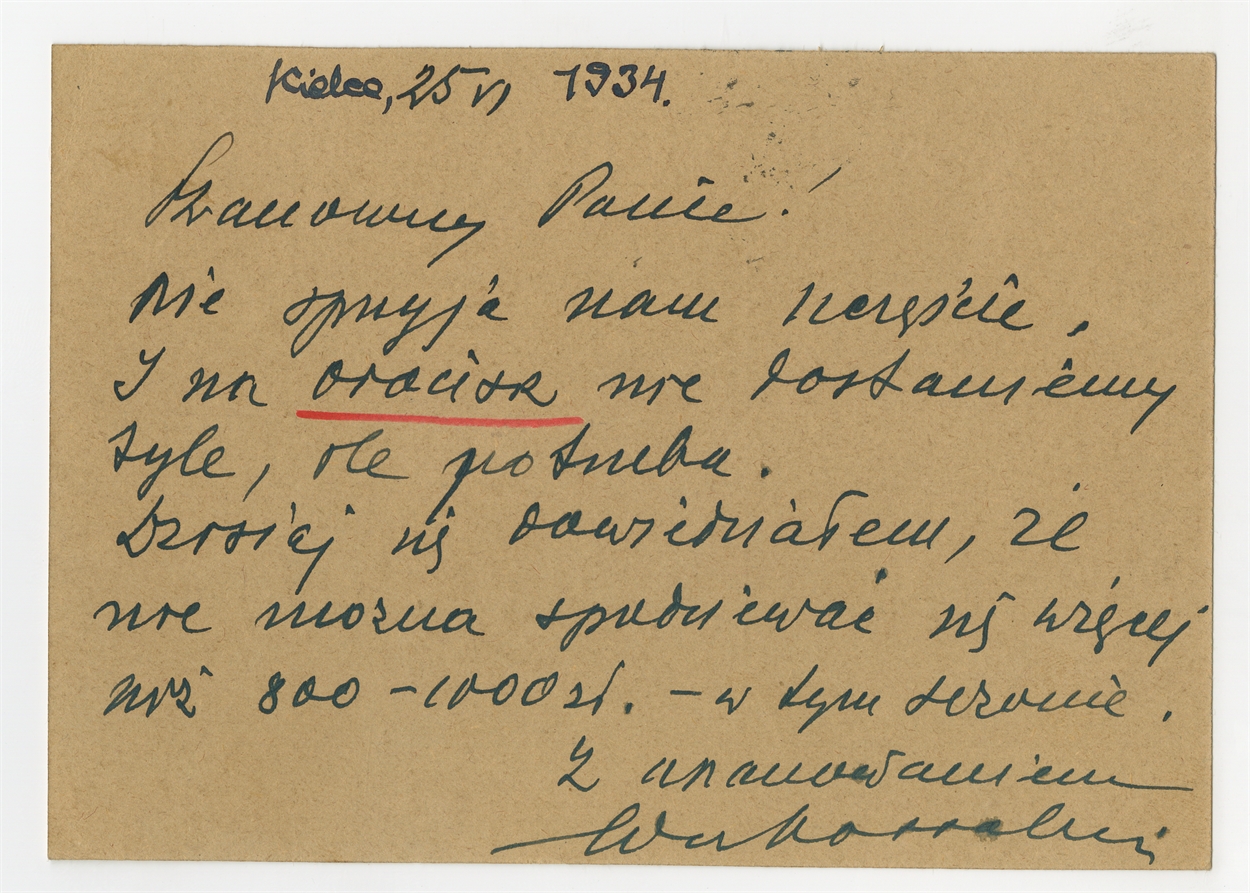 Kielce, 25 VI 1934.
Szanowny Panie!
Nie sprzyja nam szczęście.
I na orocisk nie dostaniemy
tyle, ile potrzeba.
Dzisiaj się dowiedziałem, że
nie można spodziewać się więcej
niż 800 – 1000 zł. – w tym sezonie.
Z szanowaniem